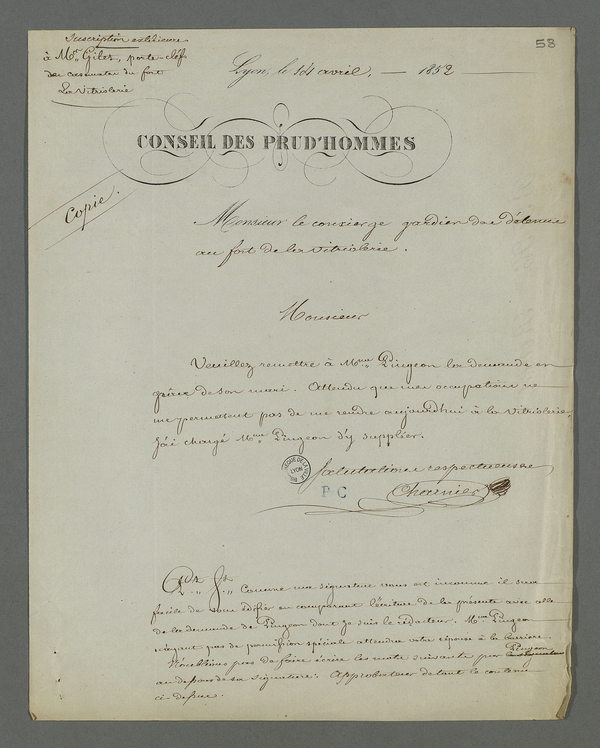 58
Suscription extérieure
à Mr. Gilet, porte-clefs
des casemates du fort
La Vitriolerie
Lyon, le 14 avril, — 1852
CONSEIL DES PRUD'HOMMES
Copie.
Monsieur le concierge gardien des détenus
au fort de la Vitriolerie.
Monsieur
Veuillez remettre à Mme Pingeon la demande en
grâce de son mari. Attendu que mes occupations ne
me permettent pas de me rendre aujourd'hui à la Vitriolerie,
j'ai chargé Mme Pingeon d'y suppléer.
Salutations respectueuses
Charnier
BIBLIOTHEQUE DE LA VILLE LYON
P C
P.S. Comme ma signature vous est inconnue il sera
facile de vous édifier en comparant l'écriture de la présente avec celle
de la demande de Pingeon dont je suis le rédacteur. Mme Pingeon
n'ayant pas de permission spéciale attendra votre réponse à la barrière.
N'oubliez pas de faire écrire les mots suivants par Pingeon
au dessous de sa signature: Approbateur de tout le contenu
ci-dessus.